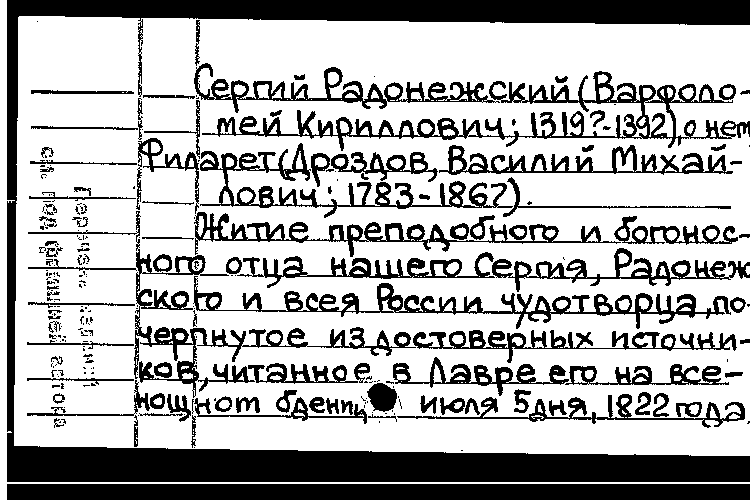 Сергий Радонежский (Варфоло-
мей Кириллович; 1319?-1392), о нем
Филарет (Дроздов, Василий Михай-
лович; 1783-1867).
Житие преподобного и богонос-
ного отца нашего Сергия, Радонеж
ского и всея России чудотворца, по-
черпнутое из достоверных источни-
ков, читанное в Лавре его на все-
нощном бдении июля 5 дня, 1822 года,
см. под фамилией автора